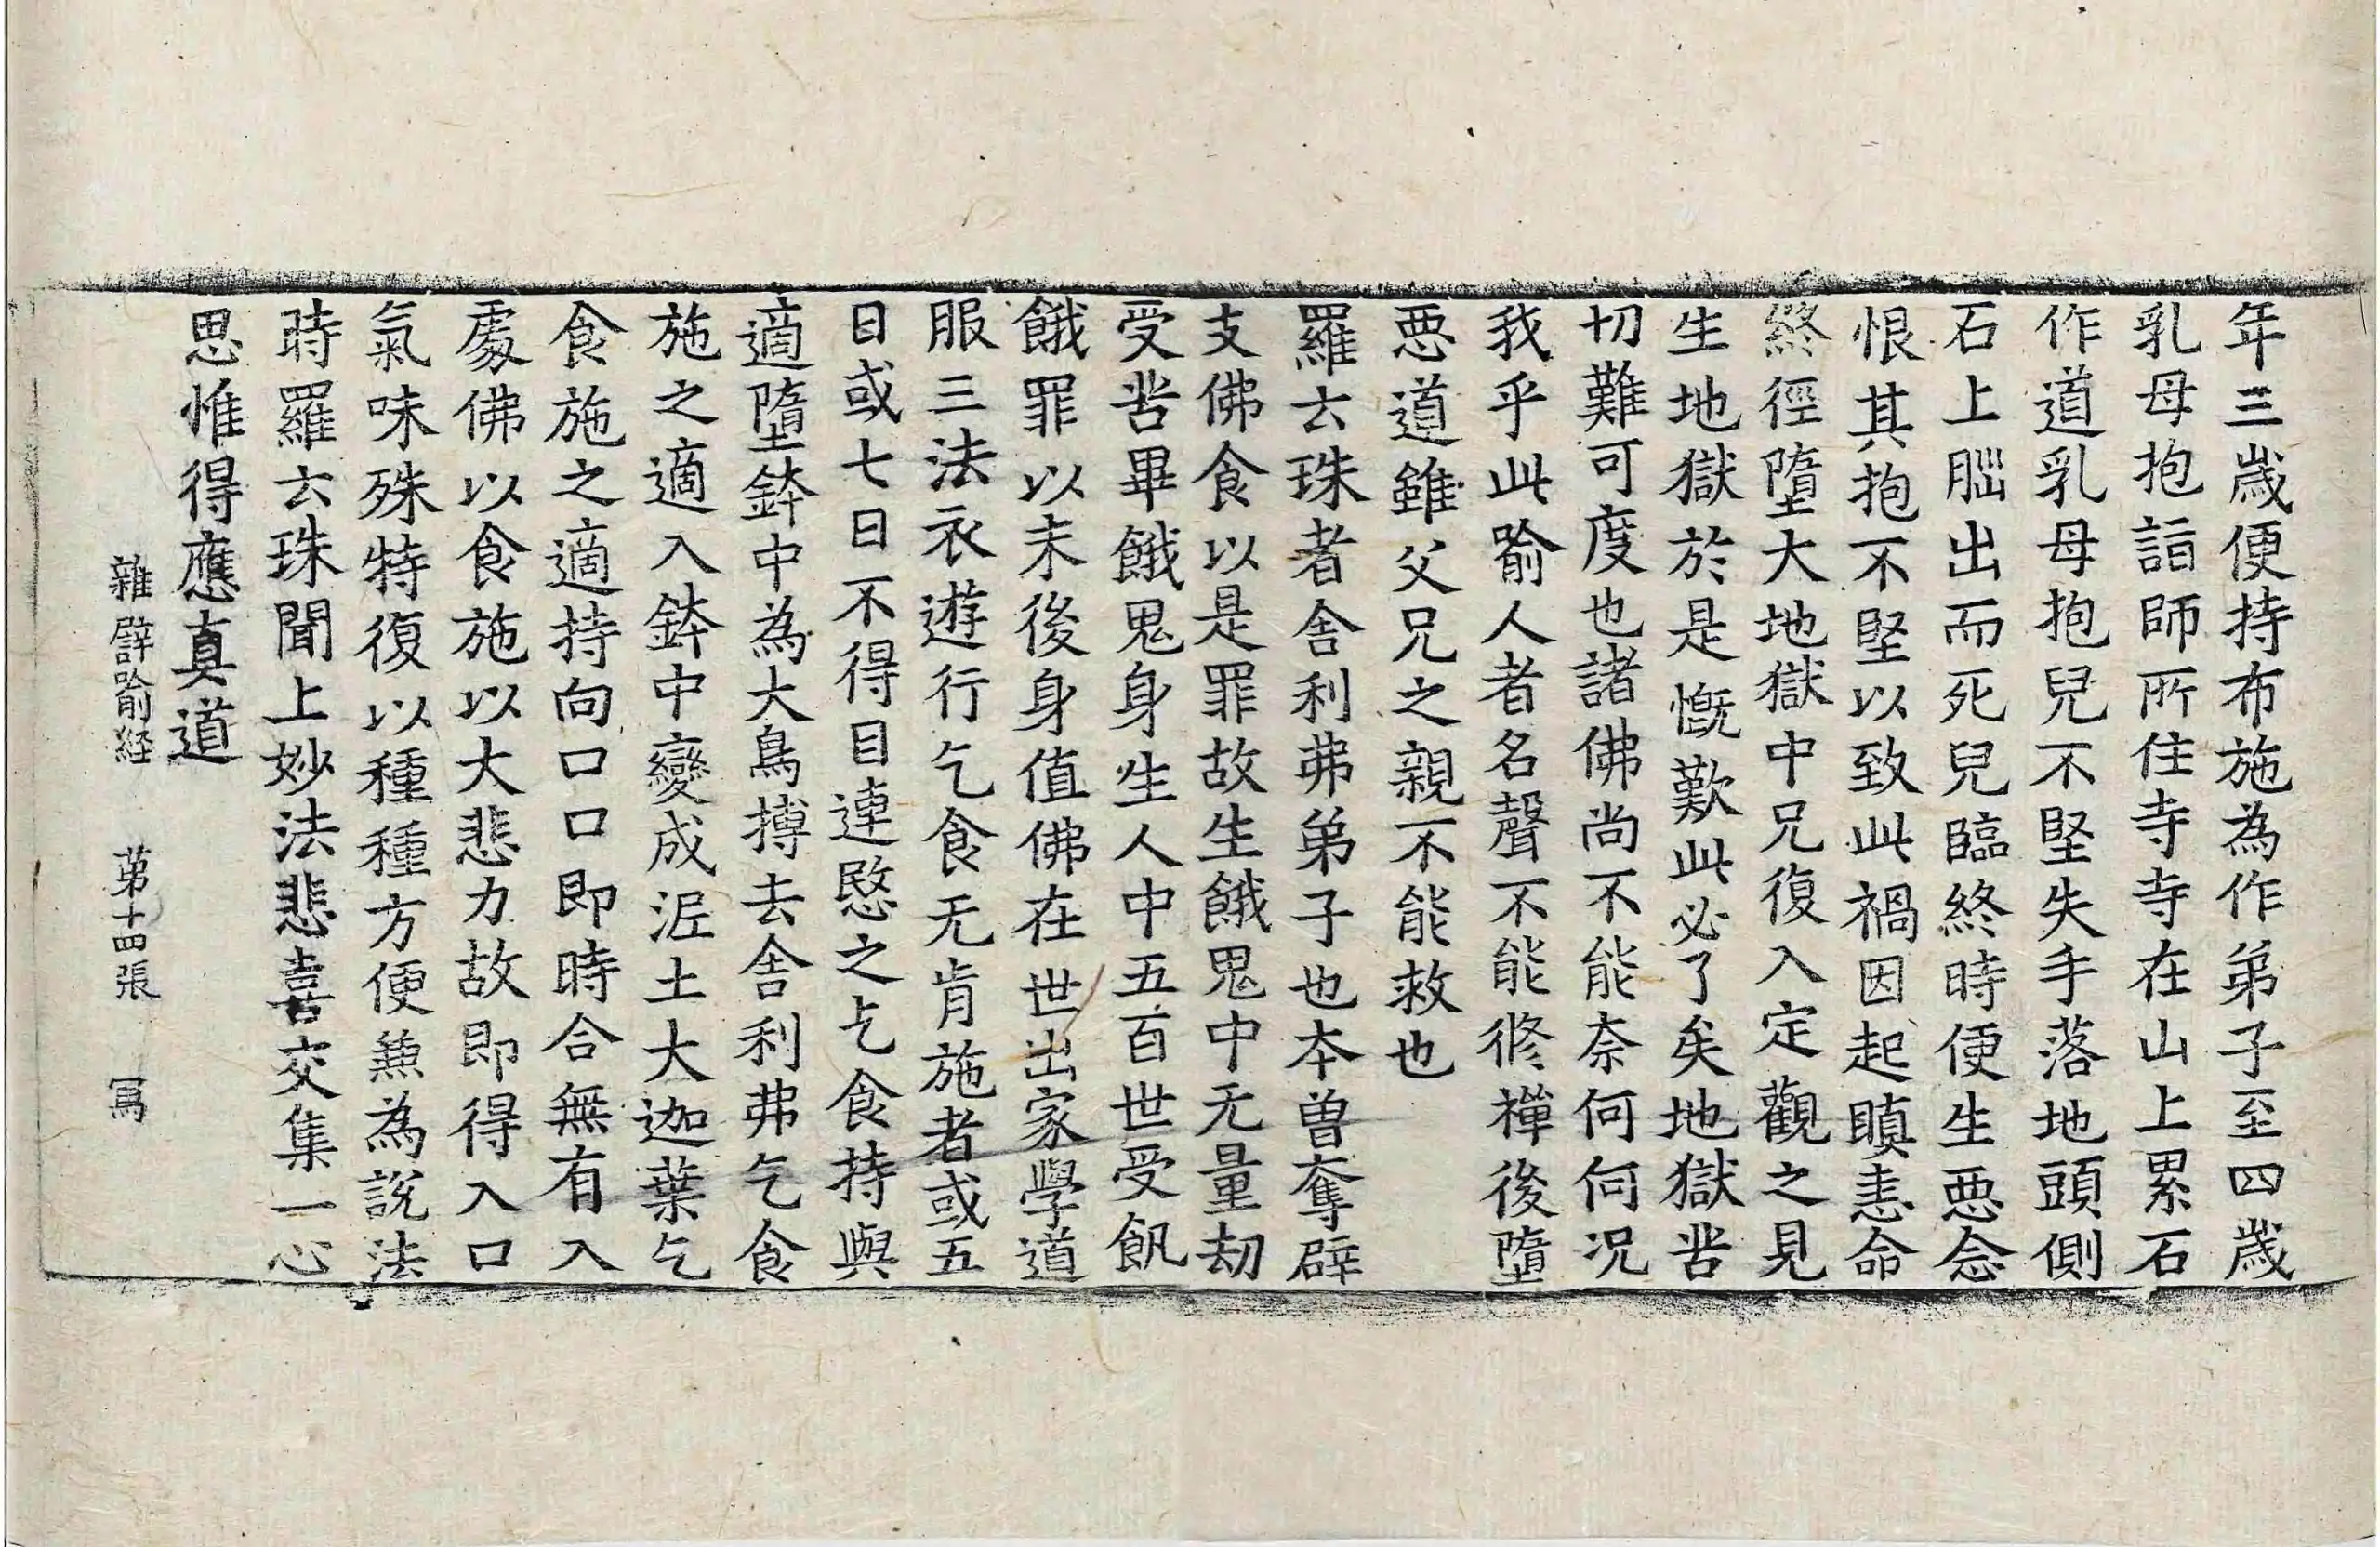 年三歲便持布施為作弟子至四歲
乳母抱詣師所住寺寺在山上累石
作道乳母抱兒不堅失手落地頭側
石上𦛁出而死兒臨終時便生惡念
恨其抱不堅以致此禍因起瞋恚命
終徑墮大地獄中兄復入定觀之見
生地獄於是慨歎此必了矣地獄苦
切難可度也諸佛尚不能奈何何況
我乎此喻人者名聲不能修禪後墮
惡道雖父兄之親不能救也
羅云珠者舍利弗弟子也本曾奪辟
支佛食以是罪故生餓鬼中无量劫
受苦畢餓鬼身生人中五百世受飢
餓罪以末後身值佛在世出家學道
服三法衣遊行乞食无肯施者或五
日或七日不得目連愍之乞食持與
適墮鉢中為大鳥搏去舍利弗乞食
施之適入鉢中變成泥土大迦葉乞
食施之適持向口口即時合無有入
處佛以食施以大悲力故即得入口
氣味殊特復以種種方便兼為說法
時羅云珠聞上妙法悲喜交集一心
思惟得應真道
雜譬喻経 第十四張 冩